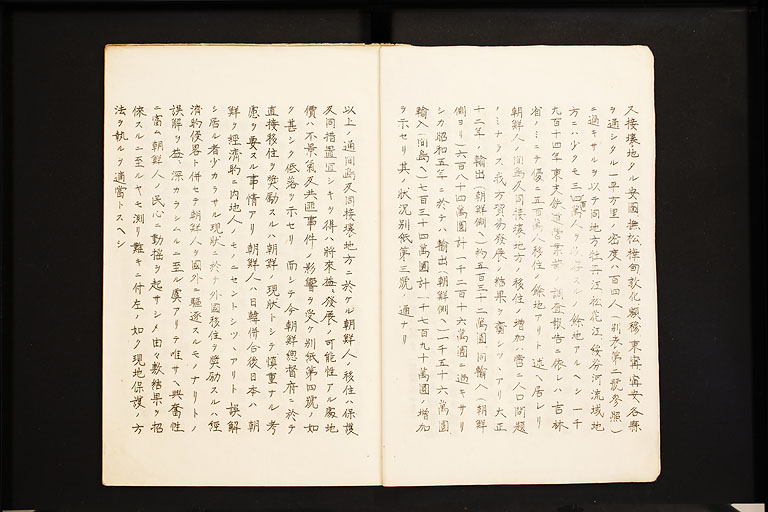 又接壤地タル安圖撫松樺甸敦化額穆東寧寧安各縣
ヲ通シタル一平方里ノ密度ハ百四人(別表第二號參照)
ニ過キサルヲ以テ同地方牡丹江松花江綏芬河流域地
方ニハ少クモ三四萬人ヲ スル餘地アルヘシ一千
九百十四年東支鐵道 調査報告ニ依レハ吉林
省ノミニテ優ニ五百萬人移住ノ餘地アリト述ヘ居レリ
朝鮮人ノ間島及同接壤地方ノ移住ノ增加ハ啻ニ人口問題
ノミナラス我方貿易發展ノ結果ヲ齎シツヽアリ大正
十二年ノ輸出(朝鮮側ヘ)約五百三十二萬圓同輸入(朝鮮
側ヨリ)六百八十四萬圓計一千二百十六萬圓ニ過キサリ
シカ昭和五年ニ於テハ輸出(朝鮮側ヘ)一千五十六萬圓
輸入(間島ヘ)七百三十四萬圓計一千七百九十萬圓ノ增加
ヲ示セリ其ノ狀況別紙第三號ノ通ナリ
以上ノ通間島及同接壤地方ニ於ケル朝鮮人ノ移住ハ保護
及同措置宜シキヲ得ハ將來益々發展ノ可能性アル處地
價ハ不景氣及共匪事件ノ影響ヲ受ケ別紙第四號ノ如
ク甚シク低落ヲ示セリ 而シテ今朝鮮總督府ニ於テ
直接移住ヲ獎勵スルハ朝鮮ノ現狀トシテ愼重ナル考
慮ヲ要スル事情アリ朝鮮人ハ日韓併合後日本ハ朝
鮮ヲ經濟的ニ內地人ノモノニセントシツヽアリト誤解
シ居ル者少カラサル現狀ニ於テ外國移住ヲ獎励スルハ經
濟的侵畧ト併セテ朝鮮人ヲ國外ニ驅逐スルモノナリトノ
誤解ヲ益々深カラシムルニ至ル虞アリテ唯サヘ興奮性
ニ富ム朝鮮人ノ民心ニ動搖ヲ起サシメ由々敷結果ヲ招
徠スルニ至ルヤモ測リ難キニ付左ノ如ク現地保護ノ方
法ヲ執ルヲ適當トスヘシ